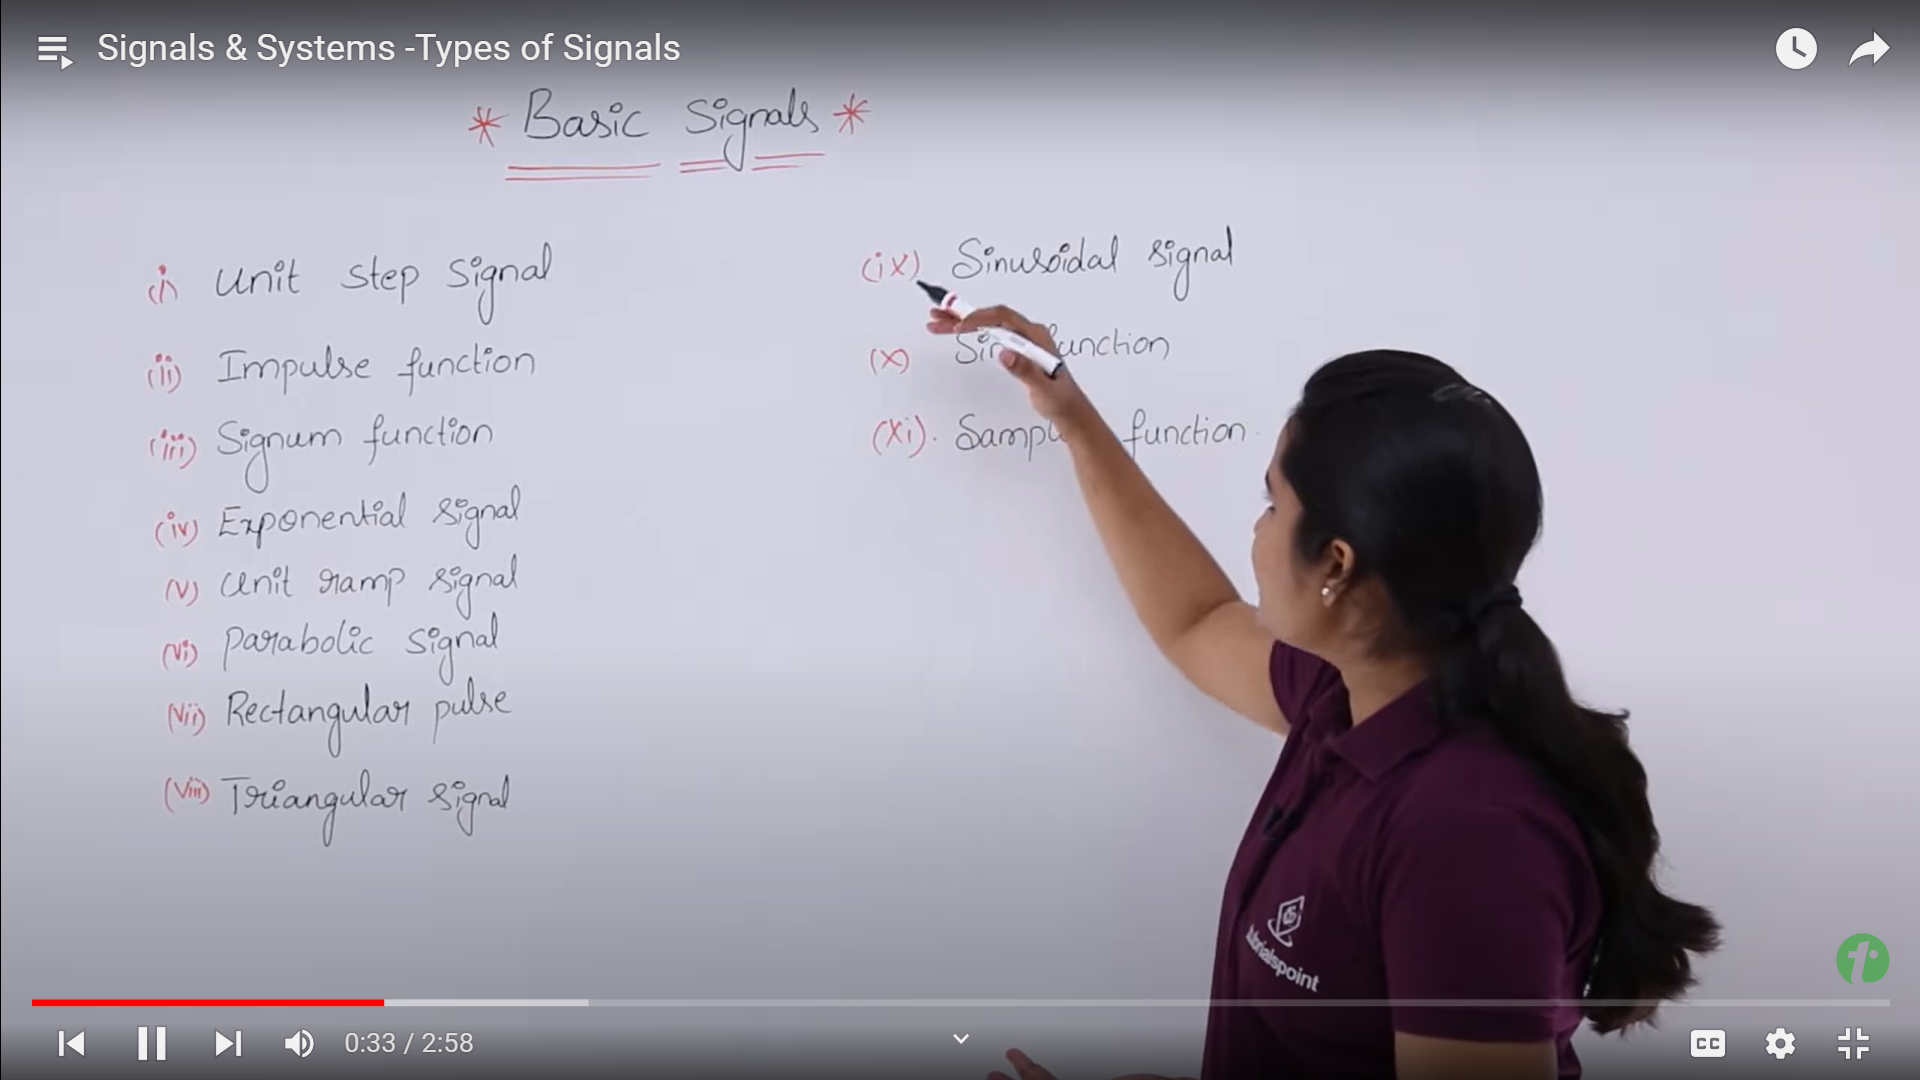 Signals & Systems -Types of Signals
* Basic Signals *
(i) Unit step signal
(ii) Impulse function
(iii) Signum function
(iv) Exponential signal
(v) Unit ramp signal
(vi) Parabolic signal
(vii) Rectangular pulse
(viii) Triangular signal
(ix) Sinusoidal signal
(x) function
(xi). function.
tutorialspoint
0:33 / 2:58
CC